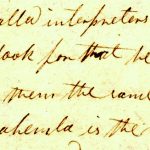 alla interpreters
look for that be
them the came
ahenla is the